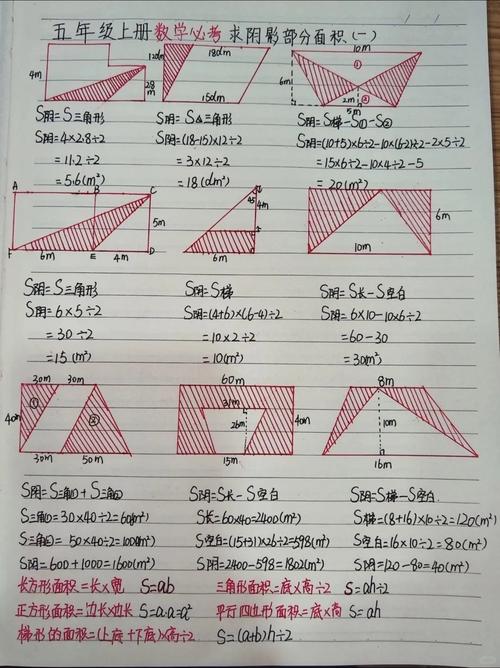 五年级上册数学必考求阴影部分面积(一)
4m 120m 2.8m
18dm 15dm
10m 6m ① ② 2m 5m
S阴=S三角形 S阴=S△三角形 S阴=S梯-S①-S②
S阴=4×2.8÷2 S阴=(18-15)×12÷2 S阴=(10+5)×6÷2-10×(6-2)÷2-2×5÷2
=11.2÷2 =3×12÷2 =15×6÷2-10×4÷2-5
=5.6(m²) =18(dm²) =20(m²)
A B C 5m F E D 6m 4m
45 4m 6m
6m 10m
S阴=S三角形 S阴=S梯 S阴=S长-S空白
S阴=6×5÷2 S阴=(4+6)×(6-4)÷2 S阴=6×10-10×6÷2
=30÷2 =10×2÷2 =60-30
=15(m²) =10(m²) =30(m²)
30m 30m 40m ① ② 30m 50m
60m 31m 26m 40m 15m
8m 10m 16m
S阴=S三角①+S三角② S阴=S长-S空白 S阴=S梯-S空白
S三角①=30×40÷2=600(m²) S长=60×40=2400(m²) S梯=(8+16)×10÷2=120(m²)
S三角②=50×40÷2=1000(m²) S空白=(15+31)×26÷2=598(m²) S空白=16×10÷2=80(m²)
S阴=600+1000=1600(m²) S阴=2400-598=1802(m²) S阴=120-80=40(m²)
长方形面积=长×宽 S=ab 三角形面积=底×高÷2 S=ah÷2
正方形面积=边长×边长 S=a·a=a² 平行四边形面积=底×高 S=ah
梯形的面积=(上底+下底)×高÷2 S=(a+b)h÷2